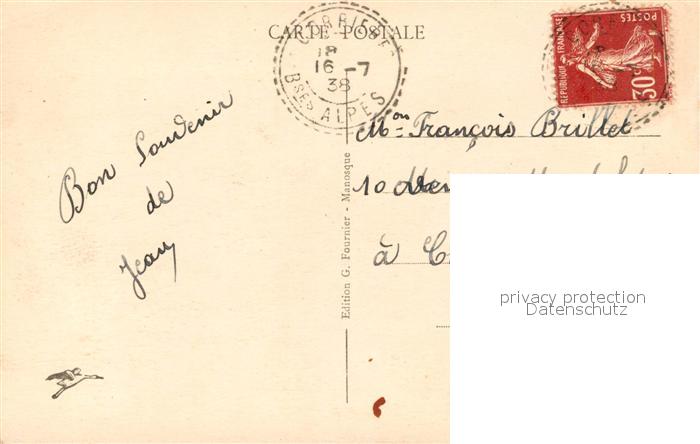 CARTE POSTALE
18
16 -7
38
Bses ALPES
POSTES
REPUBLIQUE FRANÇAISE
30c
Bon Souvenir
de
Jean
Mon François Brillet
10
à
Edition G. Fournier - Manosque
privacy protection
Datenschutz